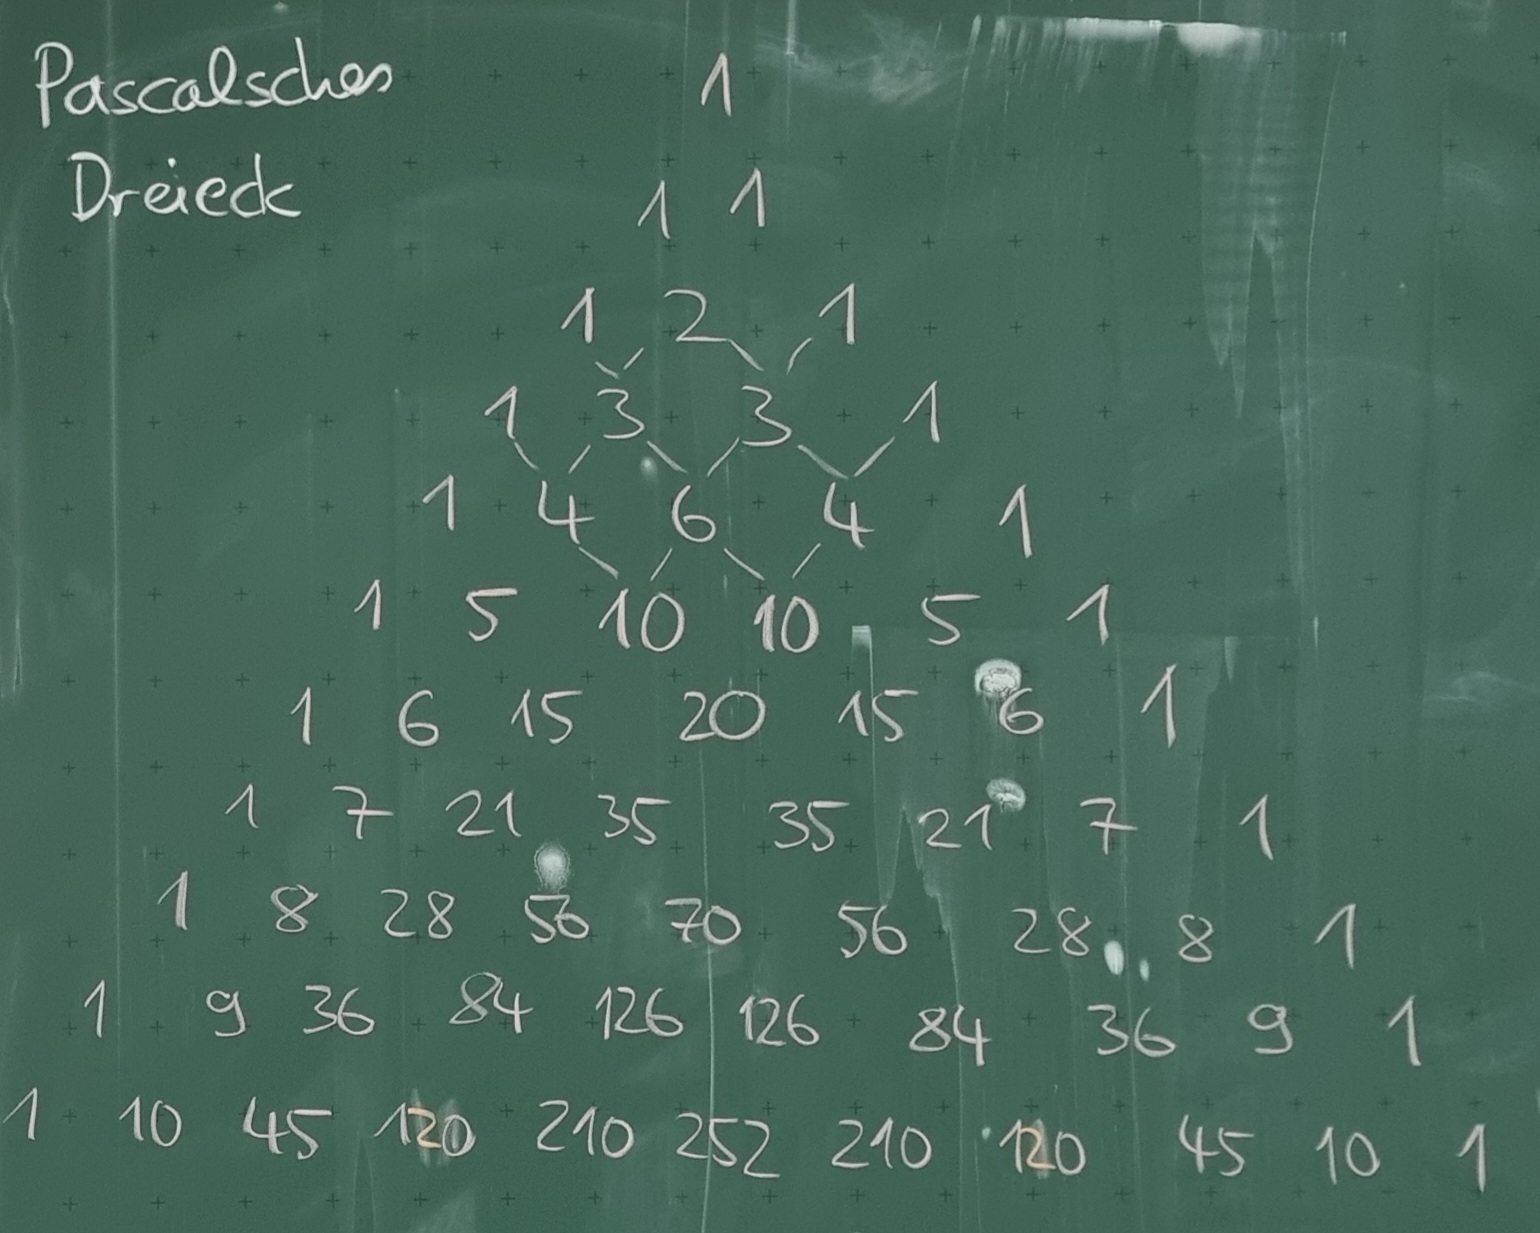 Pascalsches
Dreieck
1
1 1
1 2 1
1 3 3 1
1 4 6 4 1
1 5 10 10 5 1
1 6 15 20 15 6 1
1 7 21 35 35 21 7 1
1 8 28 56 70 56 28 8 1
1 9 36 84 126 126 84 36 9 1
1 10 45 120 210 252 210 120 45 10 1